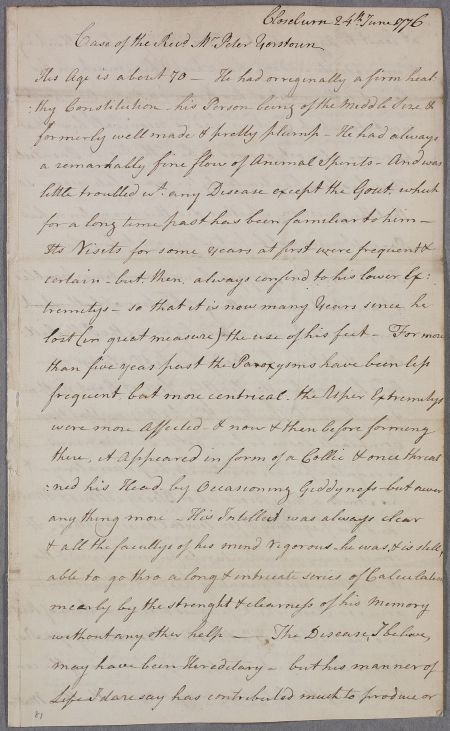 Closeburn 24th June 1776
Case of the Revd. Mr Peter Yorstoun
His Age is about 70 – He had origginally a firm heal
:thy Constitution – his Person being of the Middle Size &
formerly well made & pretty plump – He had always
a remarkably fine flow of Animal Spirits – And was
little troubled wt. any Disease except the Gout, which
for a long time past has been familiar to him –
Its Visits for some years at first were frequent &
certain – but then, always confind to his lower Ex:
tremitys – so that it is now many Years since he
lost (in great measure) the use of his feet – For more
than five years past the Paroxysms have been less
frequent but more centrical. the Upper Extremitys
were more Affected – & now & then before forming
there, it Appeared in form of a Collic & once threat
:ned his Head by Occasioning Giddyness – but never
any thing more – His Intellect was always clear
& all the facultys of his mind vigorous – he was, & is still,
able to go thro a long & intricate series of Calculation
meerly by the strenght & clearness of his Memory
without any other help — The Disease, I believe,
may have been Hereditary – but his manner of
Life I dare say has contributed much to produce or
81